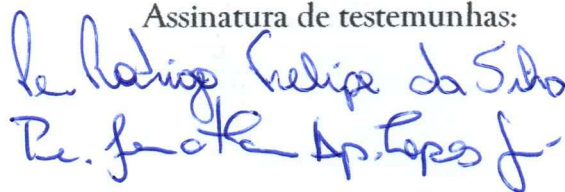 Assinatura de testemunhas:
Pe. Rodrigo Felipe da Silva
Pe. Jonathan Ap. Lopes Jr